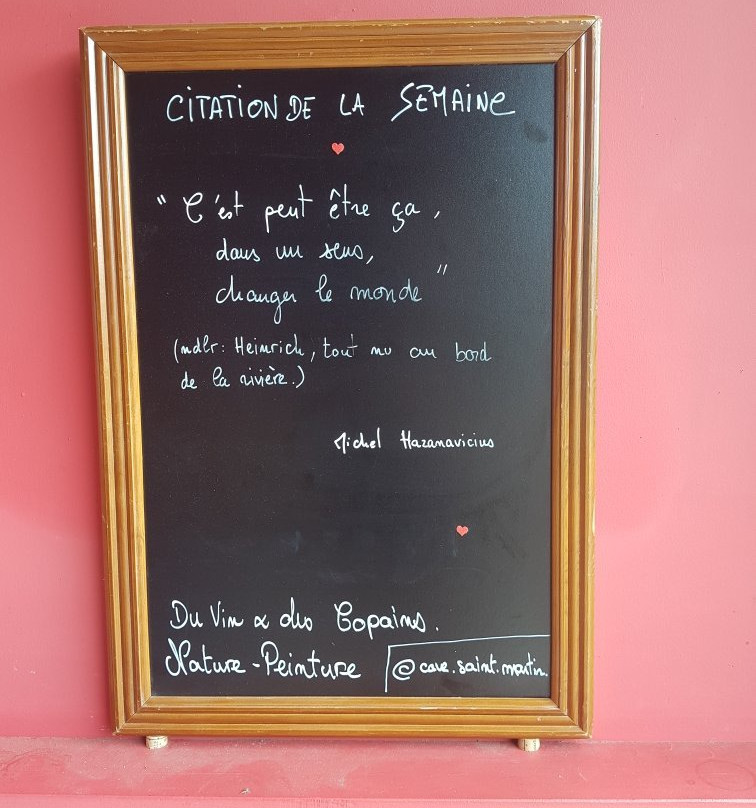 CITATION DE LA SEMAINE
" C'est peut être ça,
dans un sens,
changer le monde "
(ndlr: Heinrich, tout nu au bord
de la rivière.)
Michel Hazanavicius
Du Vin & des Copains.
Nature-Peinture
@cave.saint.martin